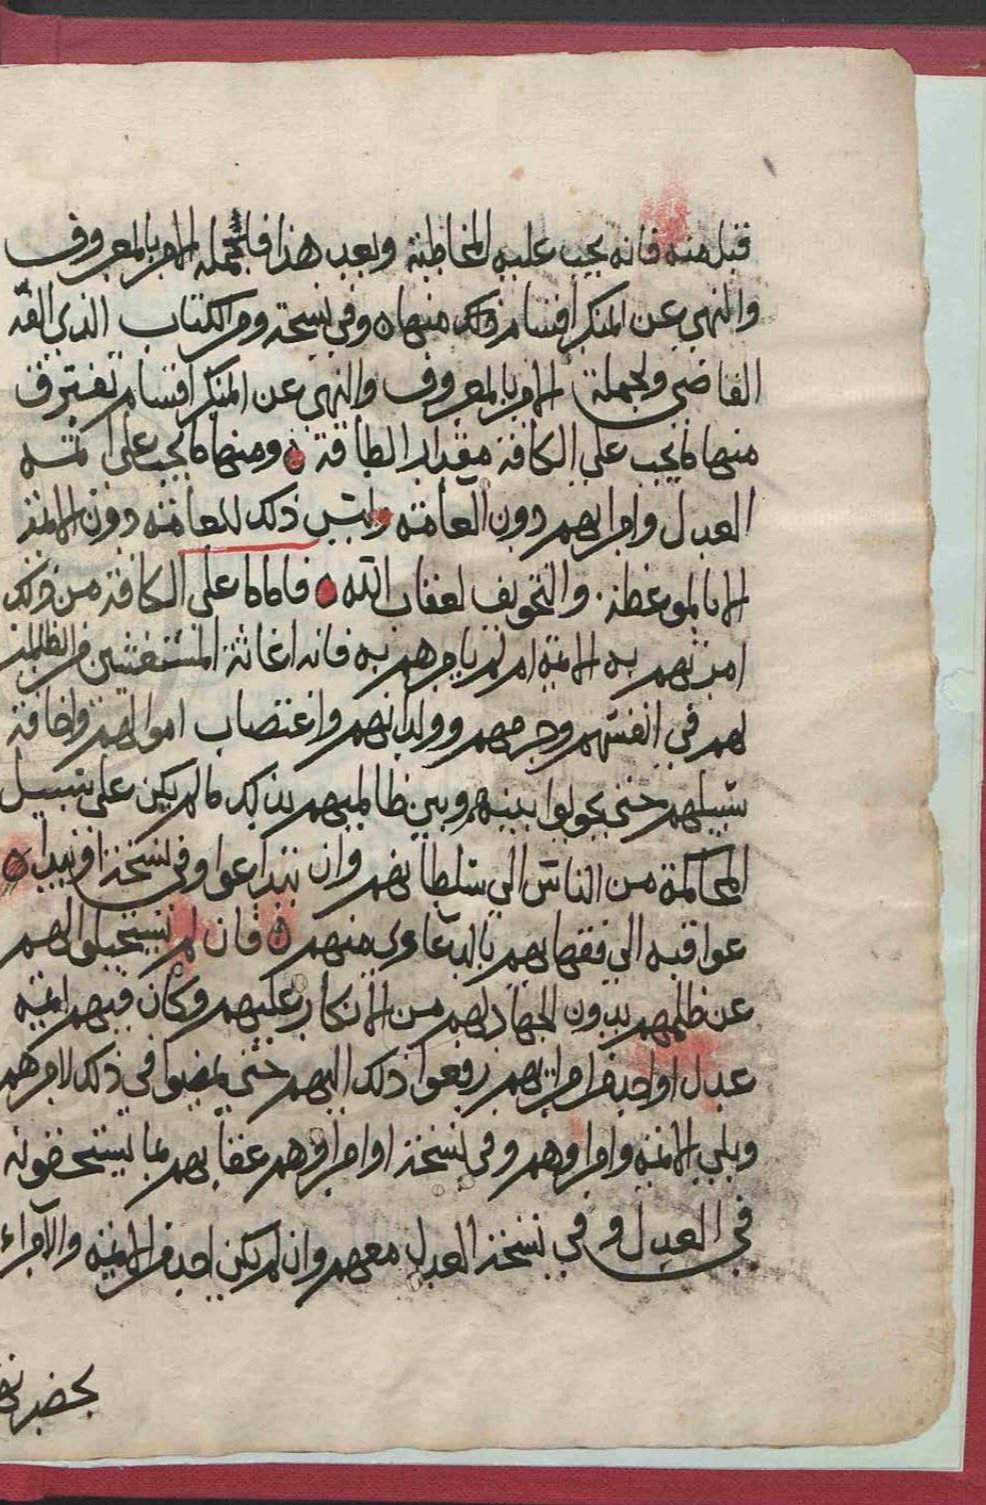 قبل منه فانه يجب عليه المخاطبة وبعد هذا فالجملة الامر بالمعروف
والنهي عن المنكر اقسام وذلك منها ه وفي نسخة ومن الكتاب الذي الفه
القاضي ولجملة الامر بالمعروف والنهي عن المنكر اقسام تفترق
منها ما يجب على الكافة مقدار الطاقة ه ومنها ما يجب على ائمة
العدل وامرائهم دون العامة وليس ذلك للعامة دون الائمة
الا بالموعظة . والتخويف لعقاب الله ه فاما ما على الكافة من ذلك
امرتهم به الائمة ام لم يامرهم به فانه اغاثة المستغيثين من الظلمة
لهم في انفسهم وحرمهم وولدانهم واغتصاب اموالهم واخافة
سبيلهم حتى يحولوا بينهم وبين ظالميهم بذلك ما لم يكن على سبيل
المحاكمة من الناس الى سلطانهم وان يتداعوا وفي نسخة او يبدا ه
عواقبه الى فقهائهم بالدعاوى منهم ه فان لم يستحيلوا لهم
عن ظلمهم بدون الجهاد لهم من الانكار عليهم وكان فيهم ائمة
عدل او احد من امرائهم رفعوا ذلك اليهم حتى يمضوا في ذلك لامرهم
ويلي الائمة وامراؤهم وفي نسخة او امراؤهم عقابهم بما يستحقونه
في العدل وفي نسخة العدل معهم وان لم يكن احد من الائمة والامراء